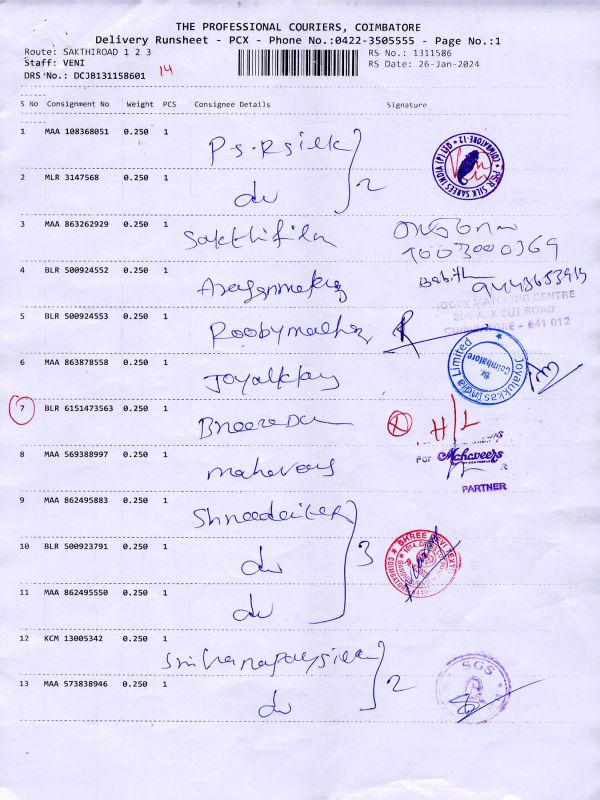 THE PROFESSIONAL COURIERS, COIMBATORE
Delivery Runsheet - PCX - Phone No.:0422-3505555 - Page No.:1
Route: SAKTHIROAD 1 2 3
RS No.: 1311586
Staff: VENI
RS Date: 26-Jan-2024
DRS No.: DCJB131158601 14
S No Consignment No Weight PCS Consignee Details Signature
1 MAA 108368051 0.250 1 P.S.R silk
PSR SILK SAREES INDIA (P) LTD COIMBATORE-12
2 MLR 3147568 0.250 1 do 2
3 MAA 863262929 0.250 1 Sakthifila
7003000369
4 BLR 500924552 0.250 1
Babith 9443653919
5 BLR 500924553 0.250 1 Roobymathg
ROOBY MATCHING CENTRE
COIMBATORE - 641 012
6 MAA 863878558 0.250 1 Joyalkkas
Joyalukkas India Limited Coimbatore
7 BLR 6151473563 0.250 1 H/L
8 MAA 569388997 0.250 1 mahaveers
For Mahaveers
PARTNER
9 MAA 862495883 0.250 1
SHREE DEVI TEXTI
10 BLR 500923791 0.250 1 do 3
11 MAA 862495550 0.250 1 do
12 KCM 13005342 0.250 1
SGS
13 MAA 573838946 0.250 1 do 2